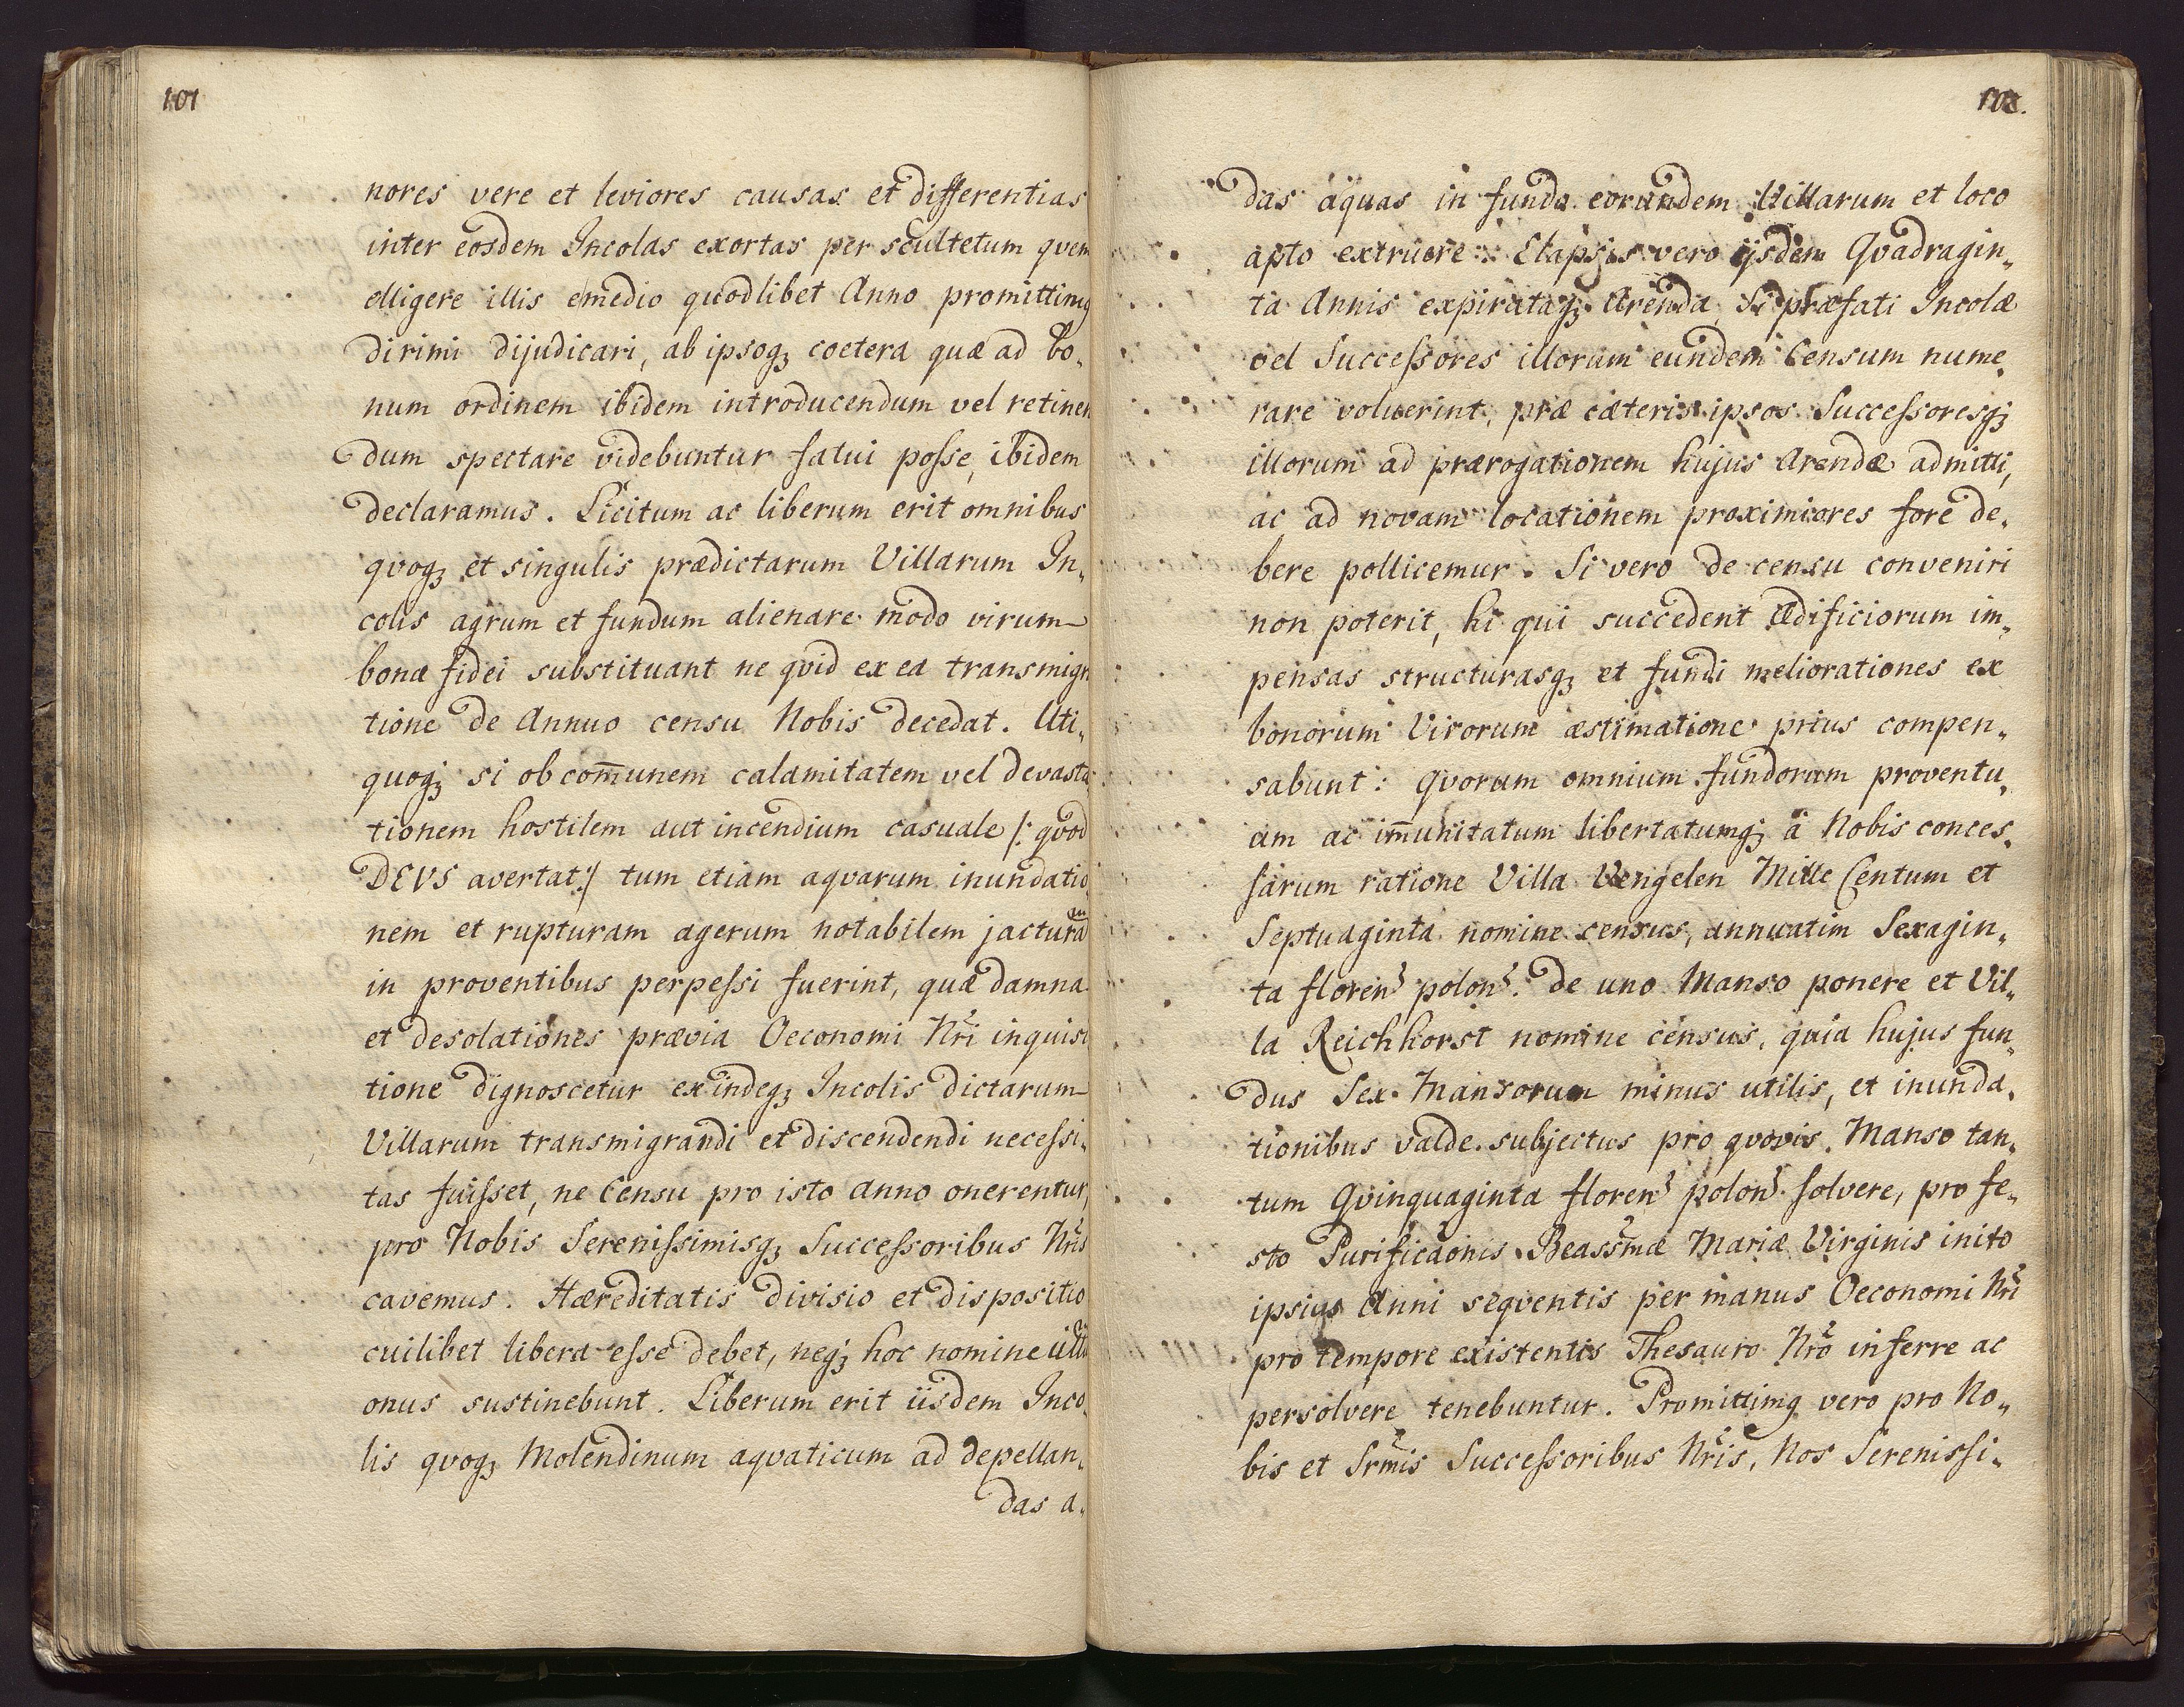 101
nores vere et leviores causas et differentias
inter eosdem Incolas exortas per scultetum qvem
elligere illis emedio quodlibet Anno promittimq
dirimi dijudicari, ab ipsoqꝫ coetera quæ ad bo„
num ordinem ibidem introducendum vel retinen
dum spectare videbuntur fatui poſse, ibidem
declaramus. Licitum ac liberum erit omnibus
qvoqꝫ et singulis prædictarum Villarum In„
colis agrum et fundum alienare modo virum
bonæ fidei substituant ne qvid ex ea transmigra
tione de Annuo censu Nobis decedat. Uti„
quoqꝫ si ob com̄unem calamitatem vel devasta
tionem hostilem aut incendium casuale /: qvod
DEVS avertat :/ tum etiam aqvarum inundatio
nem et rupturam agerum notabilem jacturam
in proventibus perpeſsi fuerint, quæ damna
et desolationes prævia Oeconomi Nr̃i inquisi
tione dignoscetur exindeqꝫ Incolis dictarum
Villarum transmigrandi et discendendi neceſsi„
tas fuiſset, ne Censu pro isto Anno onerentur,
pro Nobis Sereniſsimisqꝫ Succeſsoribus Nr̃is
cavemus. Hæreditatis divisio et dispositio
cuilibet libera eſse debet, neqꝫ hoc nomine ullũ
onus sustinebunt. Liberum erit iisdem Inco„
lis qvoqꝫ Molendinum aqvaticum ad depellan„
das a„
102.
das aquas in fundo eorundem Villarum et loco
apto extruere: Elapsis vero ijsdem Qvadragin„
ta Annis expirataqꝫ Arenda Si præfati Incolæ
vel Succeſsores illorum eundem Censum nume„
rare voluerint, præ cæteris ipsos Succeſsoresqꝫ
illorum ad prærogationem hujus Arendæ admitti,
ac ad novam locationem proximiores fore de„
bere pollicemur. Si vero de censu conveniri
non poterit, hi qui succedent ædificiorum im„
pensas structurasqꝫ et fundi meliorationes ex
bonorum Virorum æstimatione prius compen„
sabunt: Qvorum omnium fundorum proventu„
um ac im̄unitatum libertatumqꝫ à Nobis conces„
sarum ratione Villa Vengelen Mille Centum et
Septuaginta nomine census, annuatim Sexagin„
ta floren̉ polon̉. de uno Manso ponere et Vil„
la Reichhorst nomine census, quia hujus fun„
dus Sex Mansorum minus utilis, et inunda„
tionibus valde subjectus pro qvovis Manso tan„
tum Qvinquaginta floren̉ polon̉ solvere, pro fe„
sto Purificãonis Beaſsm̃æ Mariæ Virginis inito
ipsius Anni seqventis per manus Oeconomi Nr̃i
pro tempore existentis Thesauro Nr̃o inferre ac
persolvere tenebuntur. Promittimq vero pro No„
bis et Sr̃mis Succeſsoribus Nr̃is, Nos Sereniſsi„